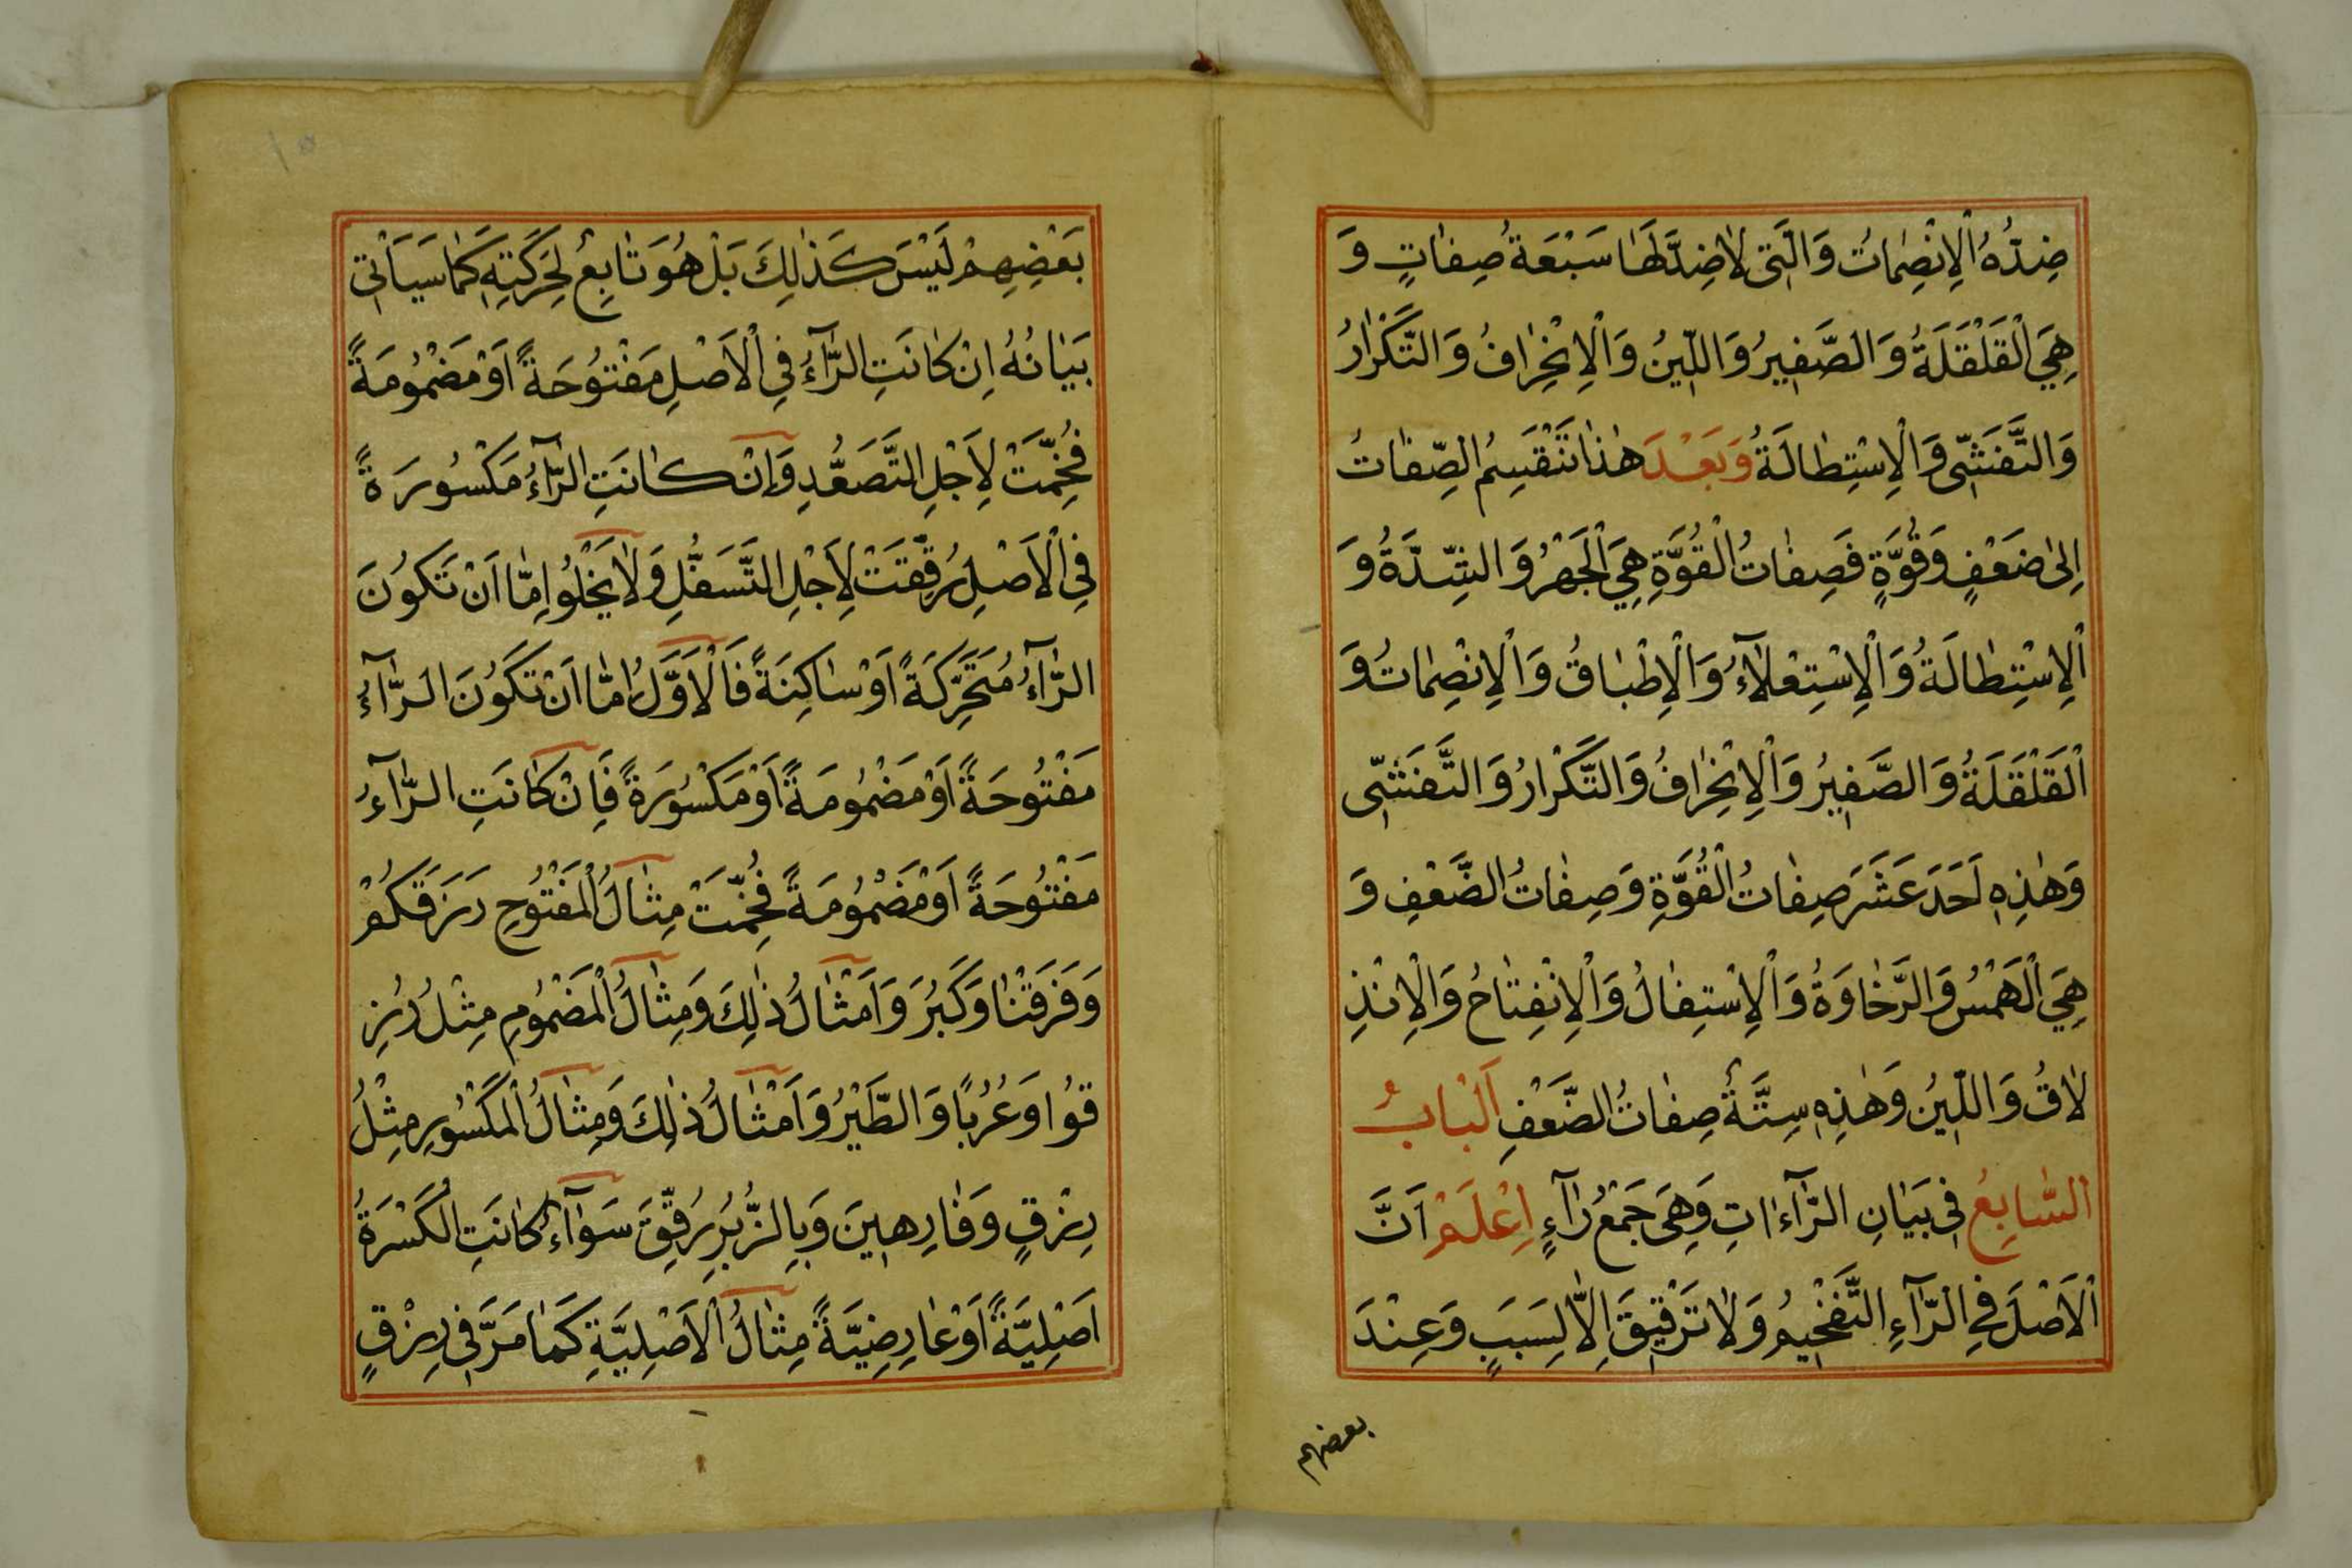 ضِدُّهُ الْاِنْصِمَاتُ وَالَّتِي لَا ضِدَّ لَهَا سَبْعَةُ صِفَاتٍ وَ
هِيَ الْقَلْقَلَةُ وَالصَّفِيرُ وَاللِّينُ وَالْاِنْحِرَافُ وَالتَّكْرَارُ
وَالتَّفَشِّى وَالْاِسْتِطَالَةُ وَبَعْدَ هٰذَا تَنْقَسِمُ الصِّفَاتُ
اِلىٰ ضَعْفٍ وَقُوَّةٍ فَصِفَاتُ الْقُوَّةِ هِيَ الْجَهْرُ وَالشِّدَّةُ وَ
الْاِسْتِطَالَةُ وَالْاِسْتِعْلَآءُ وَالْاِطْبَاقُ وَالْاِنْصِمَاتُ وَ
الْقَلْقَلَةُ وَالصَّفِيرُ وَالْاِنْحِرَافُ وَالتَّكْرَارُ وَالتَّفَشِّى
وَهٰذِهِ اَحَدَ عَشَرَ صِفَاتُ الْقُوَّةِ وَصِفَاتُ الضَّعْفِ وَ
هِيَ الْهَمْسُ وَالرَّخَاوَةُ وَالْاِسْتِفَالُ وَالْاِنْفِتَاحُ وَالْاِنْذِ
لَاقُ وَاللِّينُ وَهٰذِهِ سِتَّةُ صِفَاتُ الضَّعْفِ اَلْبَابُ
السَّابِعُ فِي بَيَانِ الرَّآءَاتِ وَهِيَ جَمْعُ رَآءٍ اِعْلَمْ اَنَّ
الْاَصْلَ فِي الرَّآءِ التَّفْخِيمُ وَلَا تَرْقِيقَ اِلَّا لِسَبَبٍ وَعِنْدَ
بعضهم
١٥
بَعْضِهِمْ لَيْسَ كَذٰلِكَ بَلْ هُوَ تَابِعٌ لِحَرَكَتِهِ كَمَا سَيَأْتِي
بَيَانُهُ اِنْ كَانَتِ الرَّآءُ فِي الْاَصْلِ مَفْتُوحَةً اَوْ مَضْمُومَةً
فُخِّمَتْ لِاَجْلِ التَّصَعُّدِ وَاِنْ كَانَتِ الرَّآءُ مَكْسُورَةً
فِي الْاَصْلِ رُقِّقَتْ لِاَجْلِ التَّسَفُّلِ وَلَا يَخْلُوا اِمَّا اَنْ تَكُونَ
الرَّآءُ مُتَحَرِّكَةً اَوْ سَاكِنَةً فَالْاَوَّلُ اِمَّا اَنْ تَكُونَ الرَّآءُ
مَفْتُوحَةً اَوْ مَضْمُومَةً اَوْ مَكْسُورَةً فَاِنْ كَانَتِ الرَّآءُ
مَفْتُوحَةً اَوْ مَضْمُومَةً فُخِّمَتْ مِثَالُ الْمَفْتُوحِ رَزَقَكُمْ
وَفَرَقْنَا وَكَبُرَ وَاَمْثَالُ ذٰلِكَ وَمِثَالُ الْمَضْمُومِ مِثْلُ رُزِ
قُوا وَعُرُبًا وَالطَّيْرُ وَاَمْثَالُ ذٰلِكَ وَمِثَالُ الْمَكْسُورِ مِثْلُ
رِزْقٍ وَفَارِهِينَ وَبِالزُّبُرِ رُقِّقَ سَوَآءٌ كَانَتِ الْكَسْرَةُ
اَصْلِيَّةً اَوْ عَارِضِيَّةً مِثَالُ الْاَصْلِيَّةِ كَمَا مَرَّ فِي رِزْقٍ